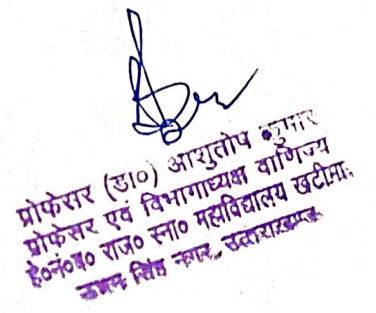 प्रोफेसर (डा०) आशुतोष कुमार
प्रोफेसर एवं विभागाध्यक्ष वाणिज्य
हे०नं०ब० राज० स्ना० महाविद्यालय खटीमा
ऊधम सिंह नगर, उत्तराखण्ड